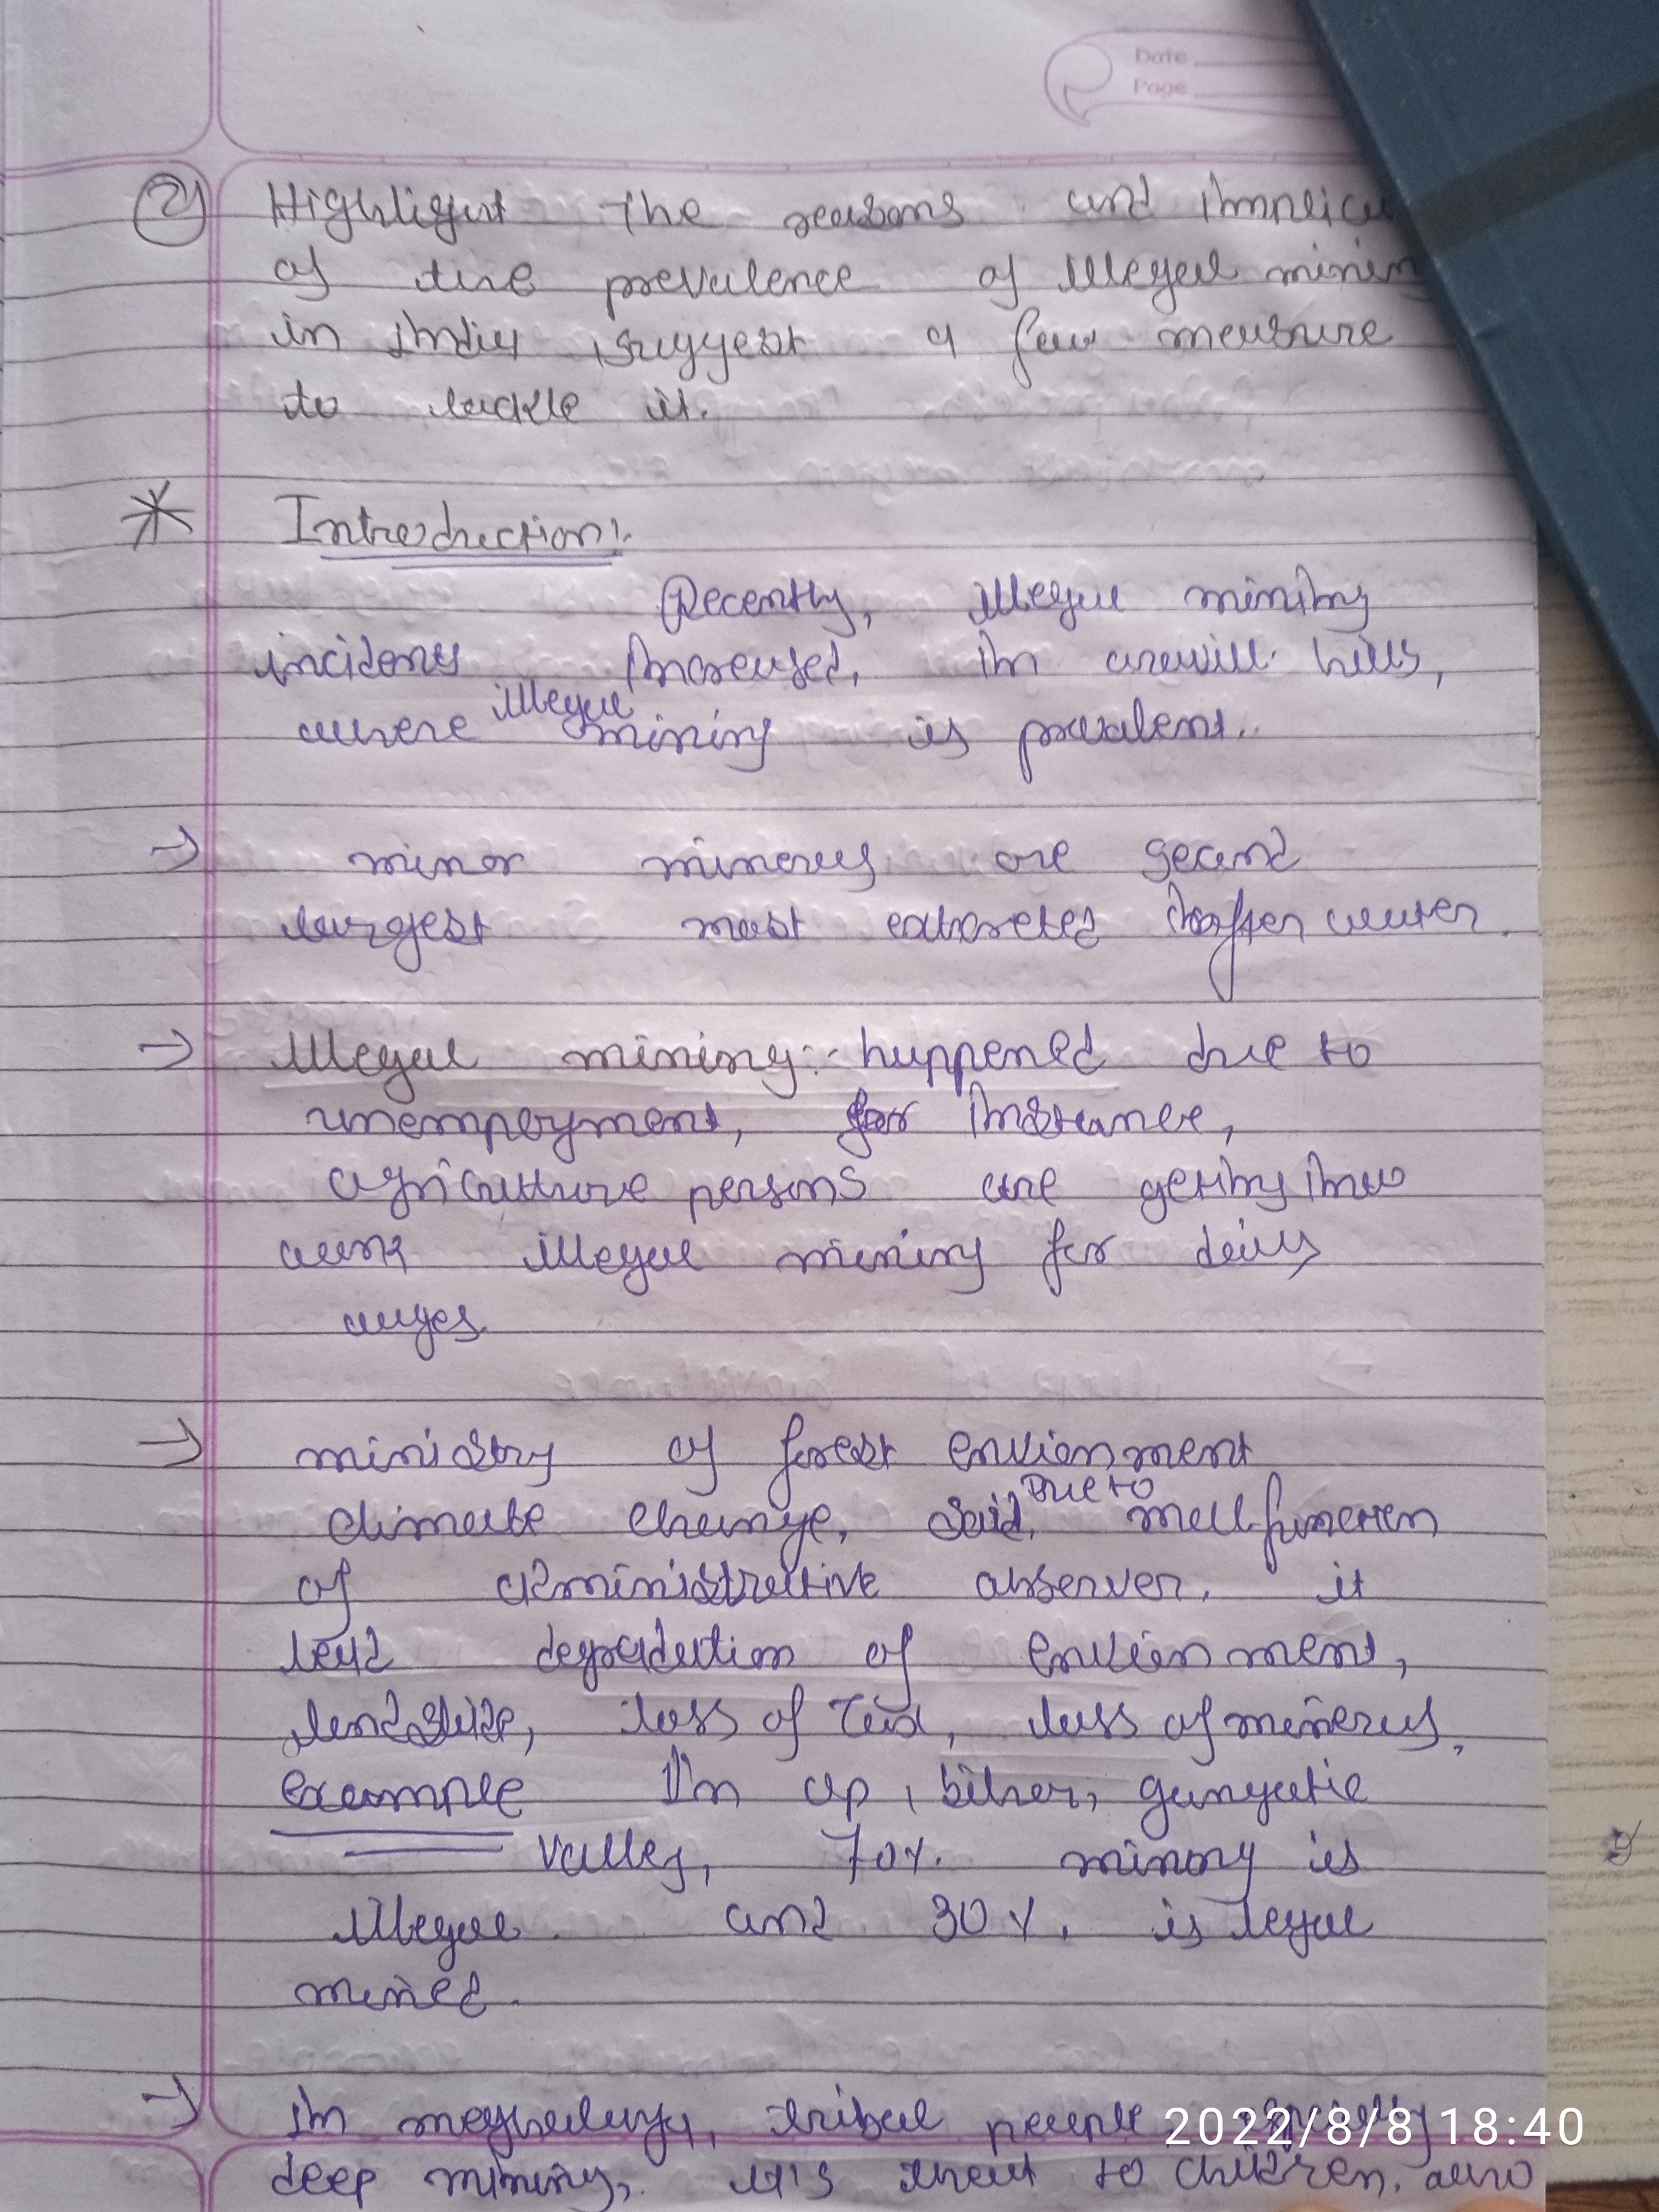 Date
Page
2) Highlight the reasons and
of the prevalence of illegal minin
in India suggest a few measure
to tackle it.
* Introduction:
Recently, illegal mining
incidents increased, in hills,
where illegal mining is prevalent.
→ minor minerals are second
largest most extracted after water.
→ Illegal mining:- happened due to
unemployment, for instance,
agriculture persons are getting into
work illegal mining for daily
wages.
→ ministry of forest envionment
climate change, said, Due to mellfunction
of administrative observer. it
lead degradation of envionment,
landslide, loss of minerals,
example In up, bihar, gangatic
valley, 70%. mining is
illegal and 30%. is legal
mined.
→ In meghalaya, tribal people
deep mining, it's threat to children. who
2022/8/8 18:40